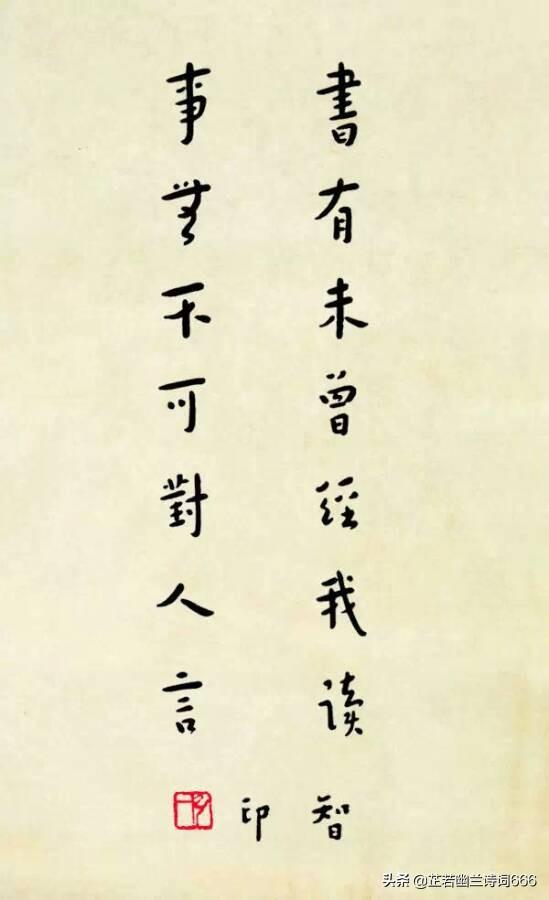 書有未曾經我读
事無不可對人言
智印
头条 @芷若幽兰诗词666